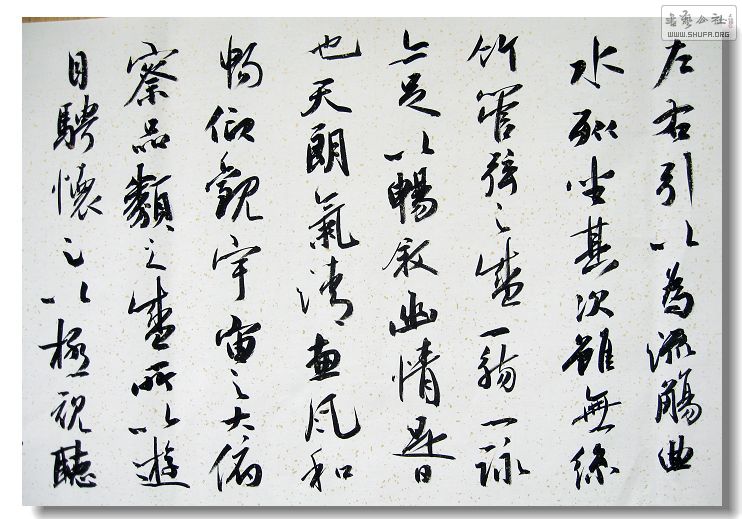 左右引以為流觴曲
水列坐其次雖無絲
竹管弦之盛一觴一詠
亦足以暢敘幽情是日
也天朗氣清惠風和
暢仰觀宇宙之大俯
察品類之盛所以遊
目騁懷足以極視聽
书艺公社
WWW.SHUFA.ORG